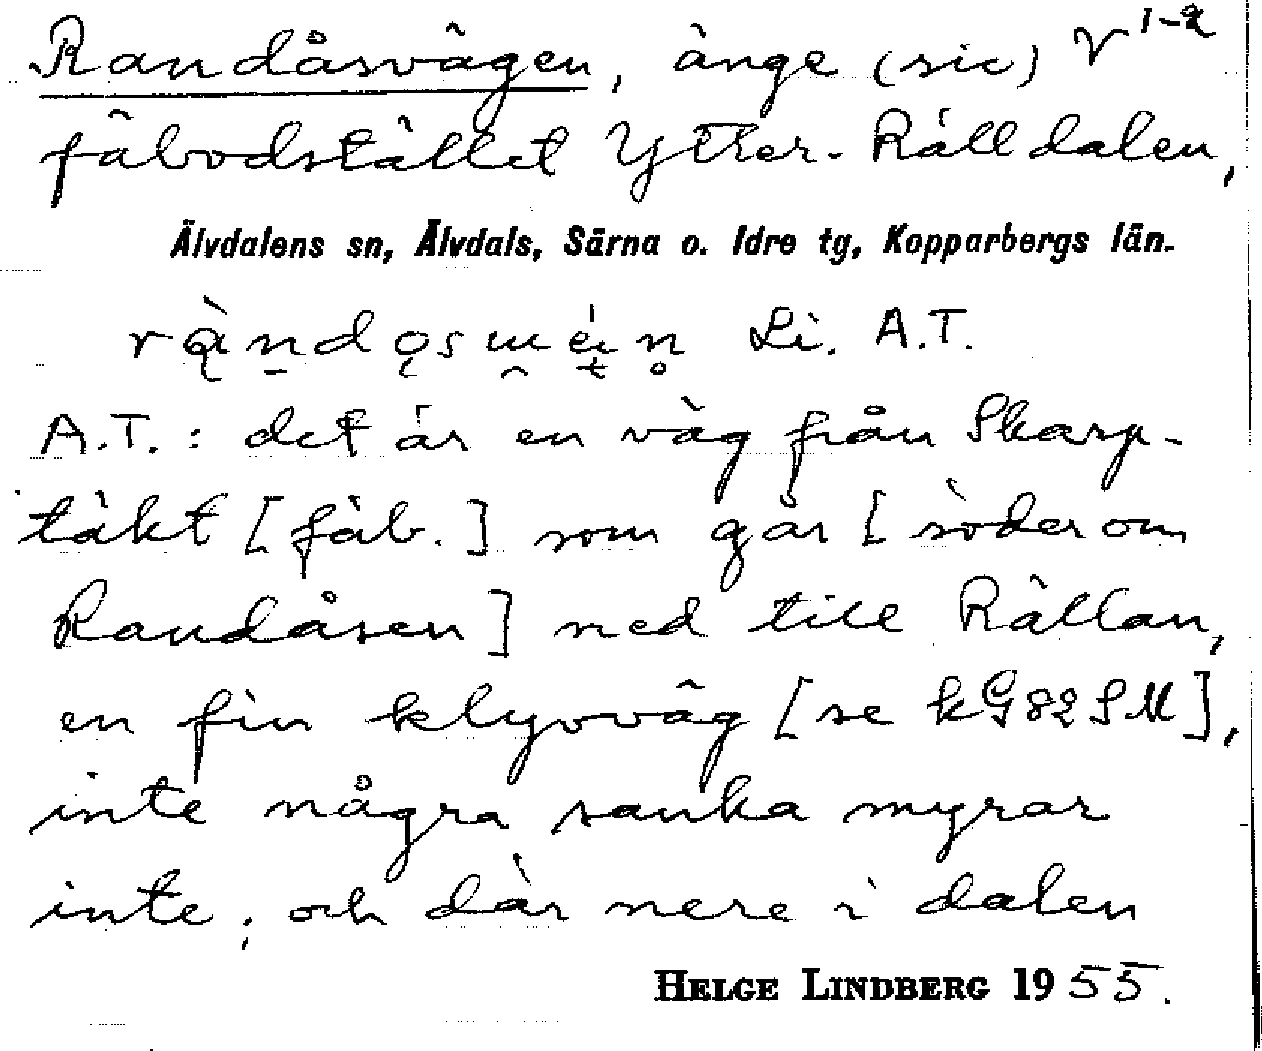 Randåsvägen, änge (sic) V 1-2
fäbodstället Ytter-Rälldalen,
Älvdalens sn, Älvdals, Särna o. Idre tg, Kopparbergs län.
Li. A.T.
A.T.: det är en väg från Skarp-
täkt [fäb.] som går [söder om
Randåsen] ned till Rällan,
en fin klyvväg [se kG82SM],
inte några sanka myrar
inte; och där nere i dalen
HELGE LINDBERG 1955.